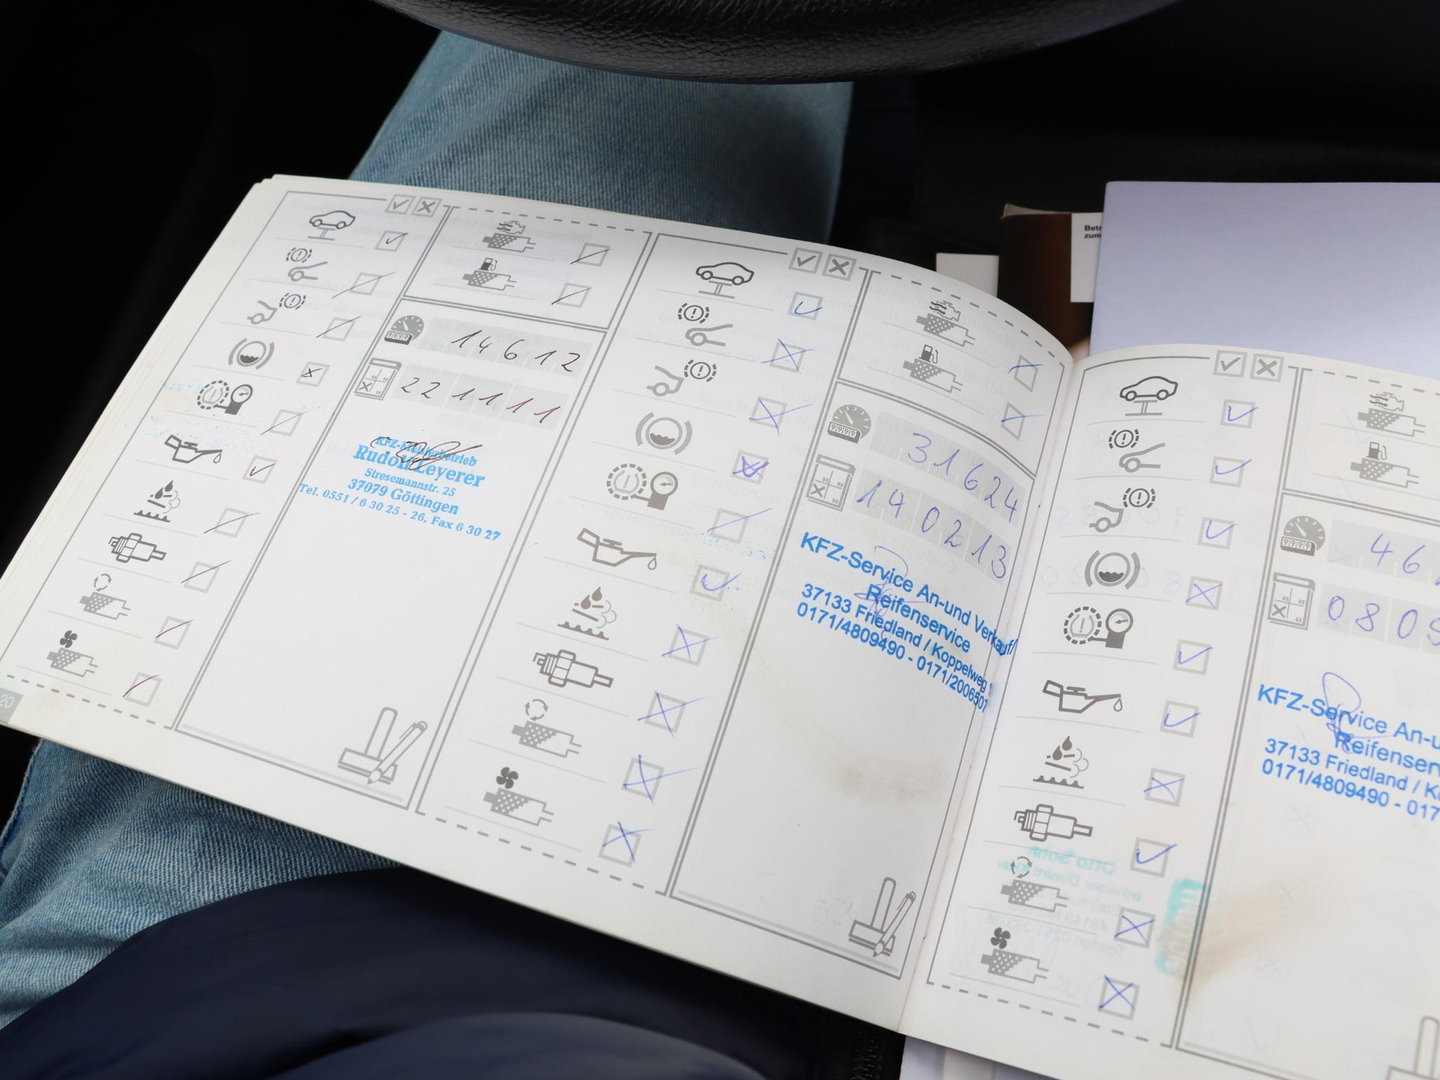 Betr
zum
14612
221111
KFZ-Meisterbetrieb
Rudolf Leyerer
Stresemannstr. 25
37079 Göttingen
Tel. 0551 / 6 30 25 - 26, Fax 6 30 27
20
31624
140213
KFZ-Service An-und Verkauf/
Reifenservice
37133 Friedland / Koppelweg
0171/4809490 - 0171/2006507
46
080
KFZ-Service An-u
Reifenserv
37133 Friedland / K
0171/4809490 - 017